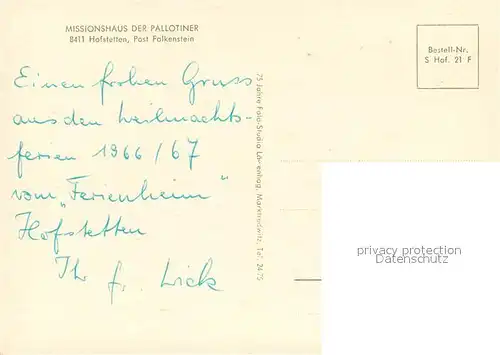 MISSIONSHAUS DER PALLOTINER
8411 Hofstetten, Post Falkenstein
Bestell-Nr.
S Hof. 21 F
Einen frohen Gruss
aus den Weihnachts-
ferien 1966/67
vom „Ferienheim"
Hofstetten
Ihr fr. Wick
75 Jahre Foto-Studio Marktredwitz, Tel. 2475
privacy protection
Datenschutz